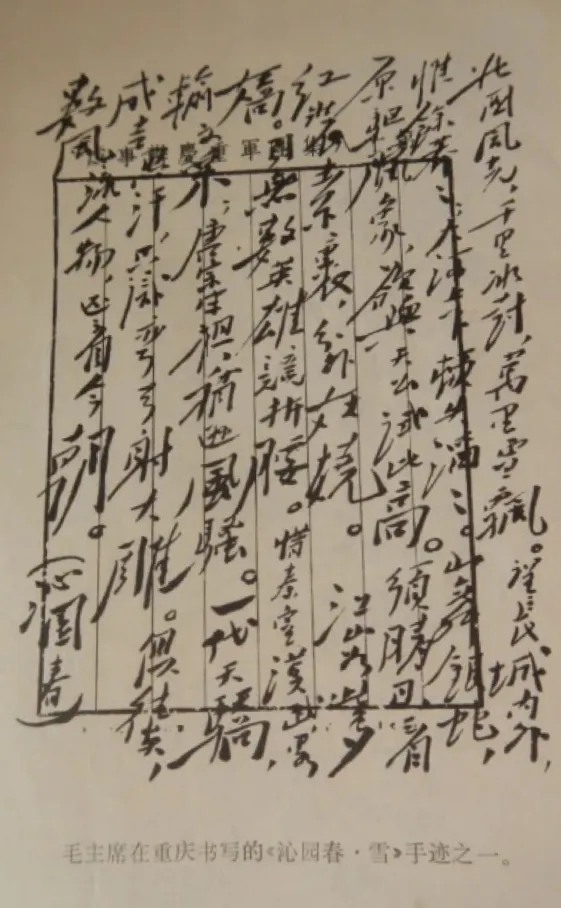 軍重慶辦事
北国風光，千里冰封，萬里雪飄。望长城内外，
惟餘莽莽；大河上下，頓失滔滔。山舞銀蛇，
原驅蠟象，欲與天公試比高。須晴日，看
红装素裹，分外妖娆。江山如此多
嬌，引無數英雄競折腰。惜秦皇漢武，略
輸文采；唐宗宋祖，稍逊風騷。一代天驕，
成吉思汗，只識弯弓射大雕。俱往矣，
數風流人物，还看今朝。
沁園春
毛主席在重庆书写的《沁园春·雪》手迹之一。